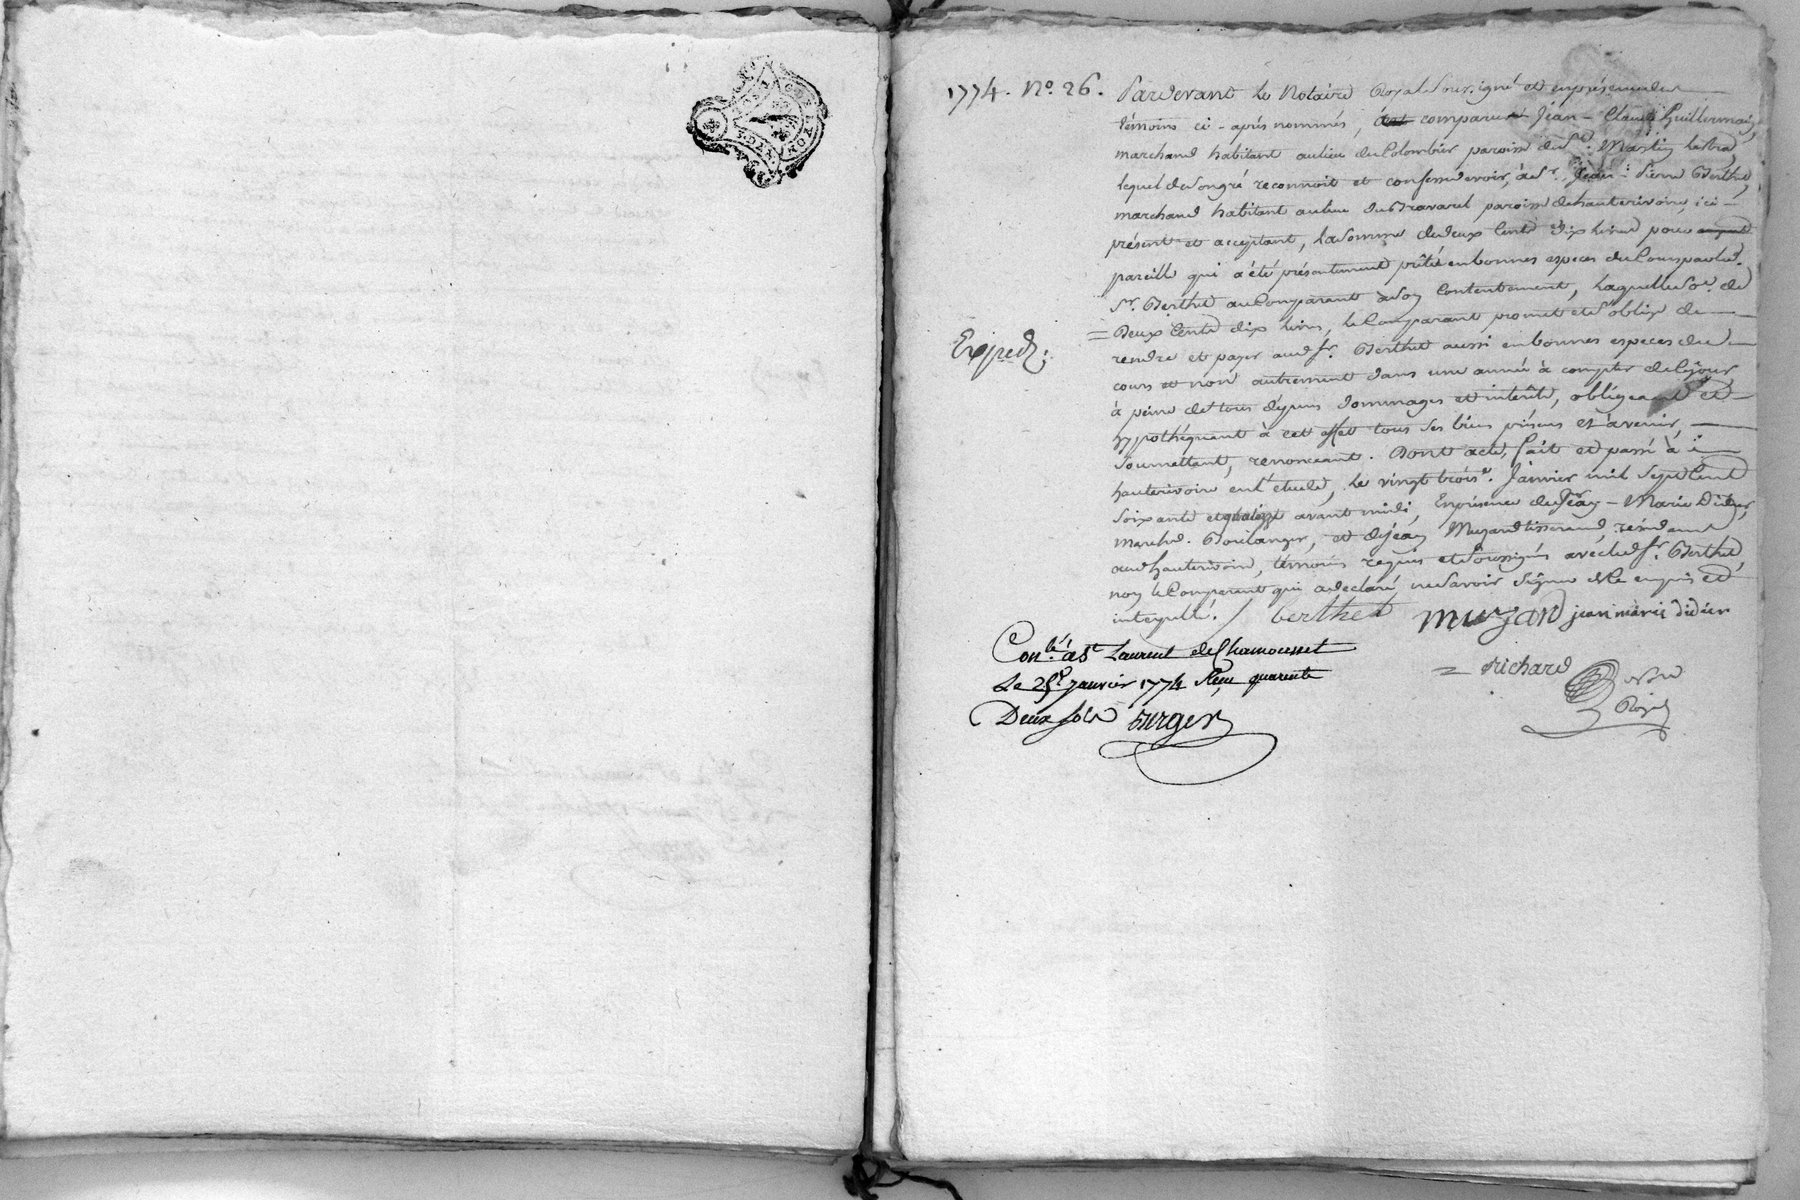 1774. N.º 26. Pardevant le Notaire Royal Soussigné et en présence des
témoins ci-après nommés, comparut Jean-Claude Guillermain,
marchand habitant au lieu du Colombier paroisse de St. Martin Lestra
lequel de son gré reconnoit et confesse devoir, à Sr. Jean-Pierre Berthet,
marchand habitant au lieu du Travard paroisse de hauterivoire, ici
présent et acceptant, la somme de deux Cents dix livres pour
pareille qui a été présentement prêtée en bonnes especes du Cours par led.
Sr. Berthet au Comparant à son Contentement, laquelle So.e de
= Deux Cents dix livres, le Comparant promet et s'oblige de
Exped:
rendre et payer aud. Sr. Berthet aussi en bonnes especes du
cours et non autrement dans une année à compter de Ce jour
à peine de tous dépens dommages et intérêts, obligeant et
hypothéquant à cet effet tous ses biens présens et à venir,
Soumettant, renonceant. Dont acte, fait et passé à
hauterivoire en l'étude, le vingt trois.e Janvier mil Sept Cent
Soixante et quatorze avant midi, En présence de Jean-Marie Didier,
march.d Boulanger, et de Jean Muzard tisserand, résidants
aud. hauterivoire, témoins requis et Soussignés avec led. Sr. Berthet
non le Comparant qui a declaré ne Savoir Signer de Ce enquis et
interpellé. / berthet muzard jean marie didier
Con.lé à St Laurent de Chamousset
Le 25.e janvier 1774 Reçu quarente
Deux sols Burger
= Richard
N.re
Royal